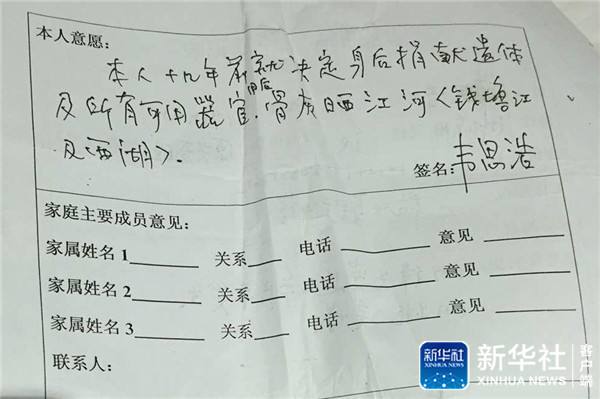 本人意愿:
本人十九年前就决定身后捐献遗体
及所有可用器官.骨灰
洒江河<钱塘江
及西湖>.
签名: 韦思浩
家庭主要成员意见:
家属姓名1 关系 电话 意见
家属姓名2 关系 电话 意见
家属姓名3 关系 电话 意见
联系人:
新华社
新华社 客户端
XINHUA NEWS